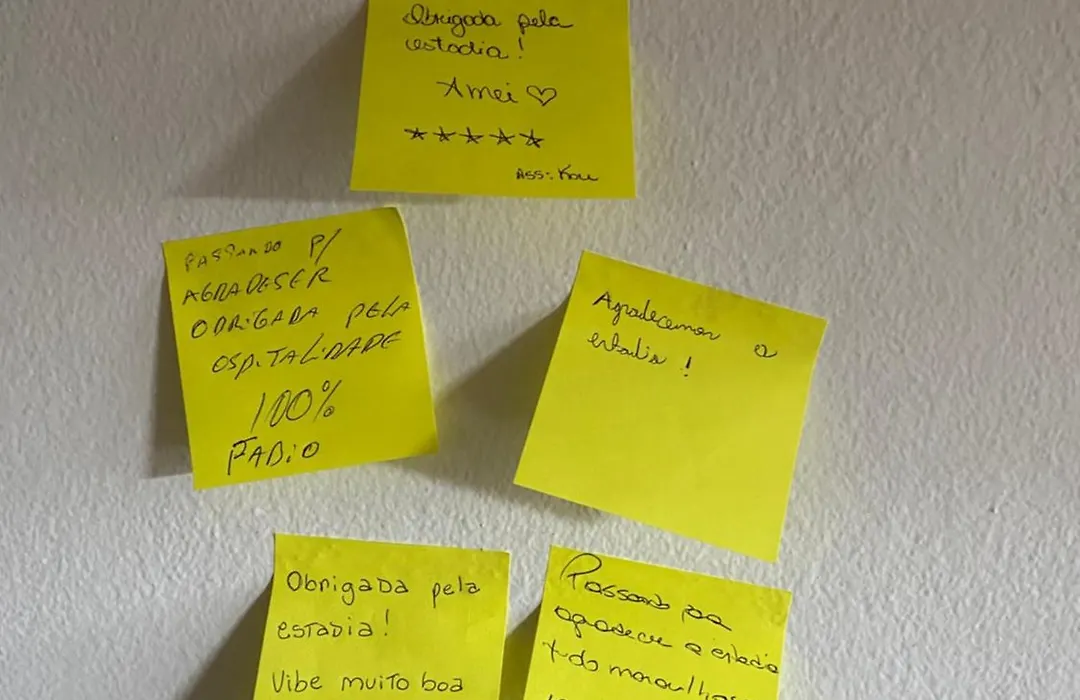 Obrigada pela
estadia!
Amei ♡
★★★★★
ASS:.
PASSANDO P/
AGRADESER
OBRIGADA PELA
OSPITALIDADE
100%
FABIO
Agradecemos a
estadia!
Obrigada pela
estadia!
Vibe muito boa
Passando pra
agradecer a estadia
tudo